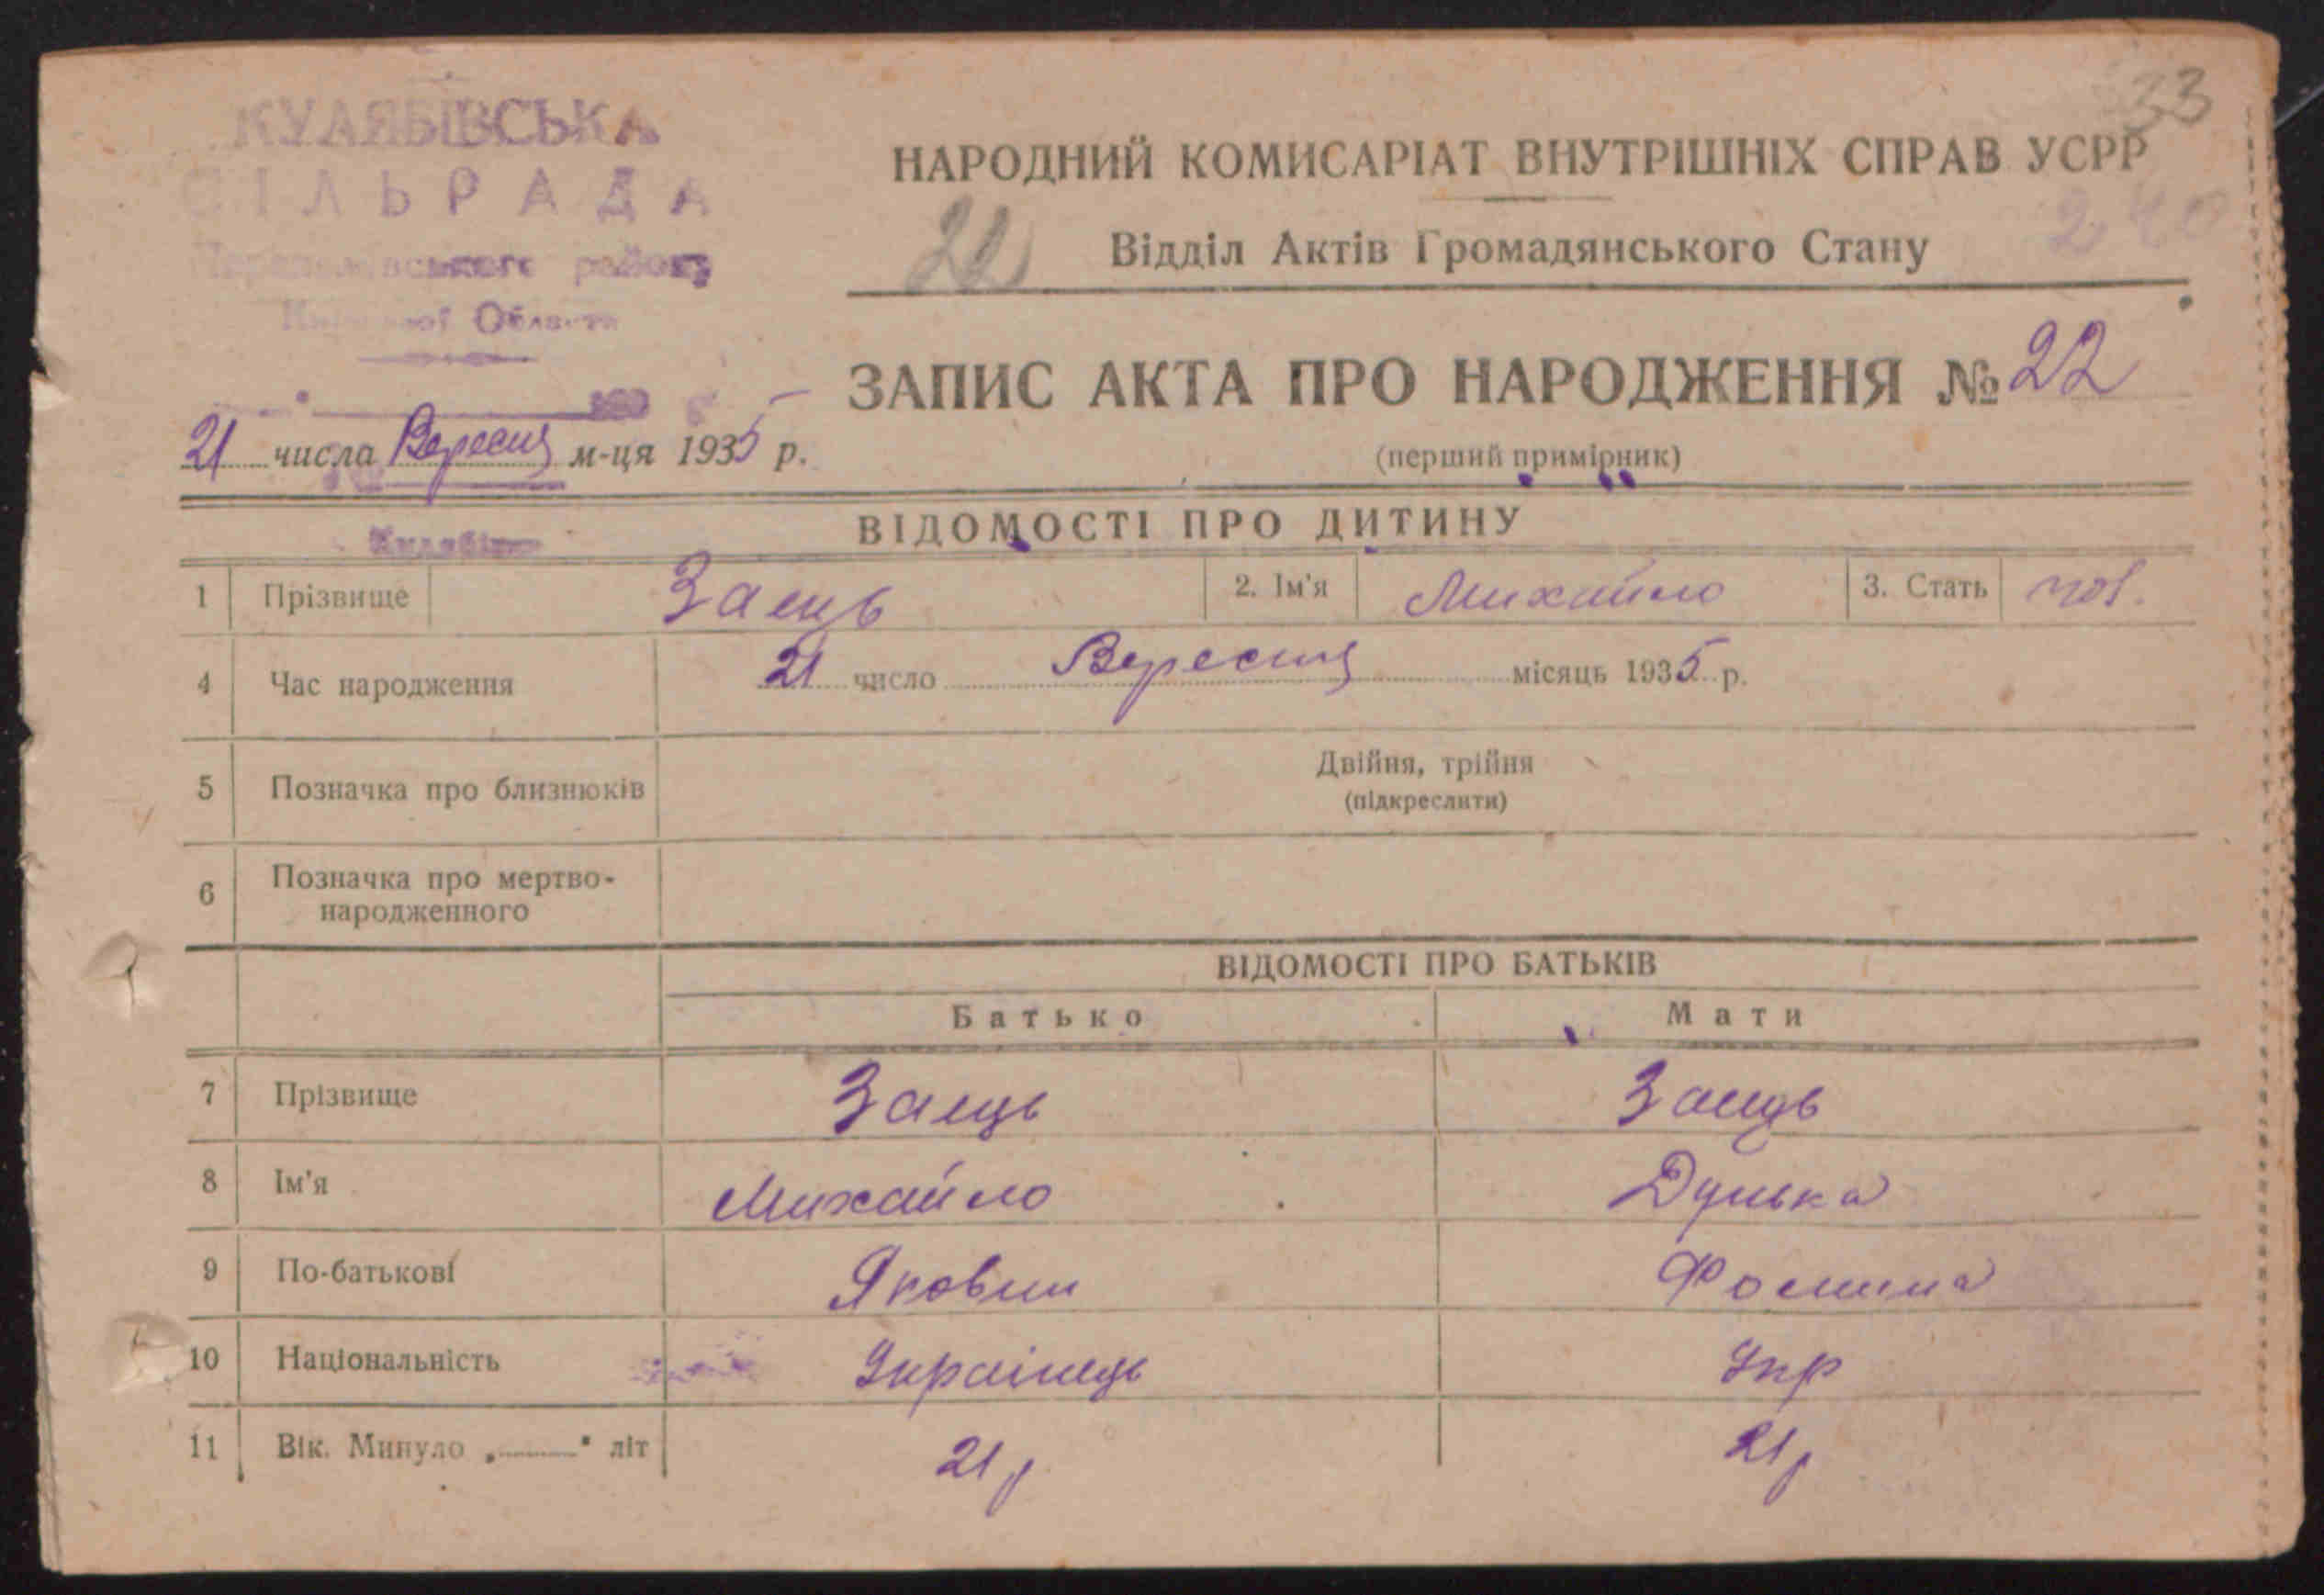 33
КУЛЯБІВСЬКА
СІЛЬРАДА
району
Області
НАРОДНИЙ КОМИСАРІАТ ВНУТРІШНІХ СПРАВ УСРР
240
22
Відділ Актів Громадянського Стану
ЗАПИС АКТА ПРО НАРОДЖЕННЯ № 22
21 числа Вересня м-ця 1935 р.
(перший примірник)
ВІДОМОСТІ ПРО ДИТИНУ
1 Прізвище Заєць 2. Ім'я Михайло 3. Стать чол.
4 Час народження 21 число Вересня місяць 1935 р.
5 Позначка про близнюків Двійня, трійня
(підкреслити)
6 Позначка про мертво-
народженного
ВІДОМОСТІ ПРО БАТЬКІВ
Батько Мати
7 Прізвище Заєць Заєць
8 Ім'я Михайло Дунька
9 По-батькові Якович Фомина
10 Національність Українець Укр
11 Вік. Минуло „ " літ 21 р 21 р